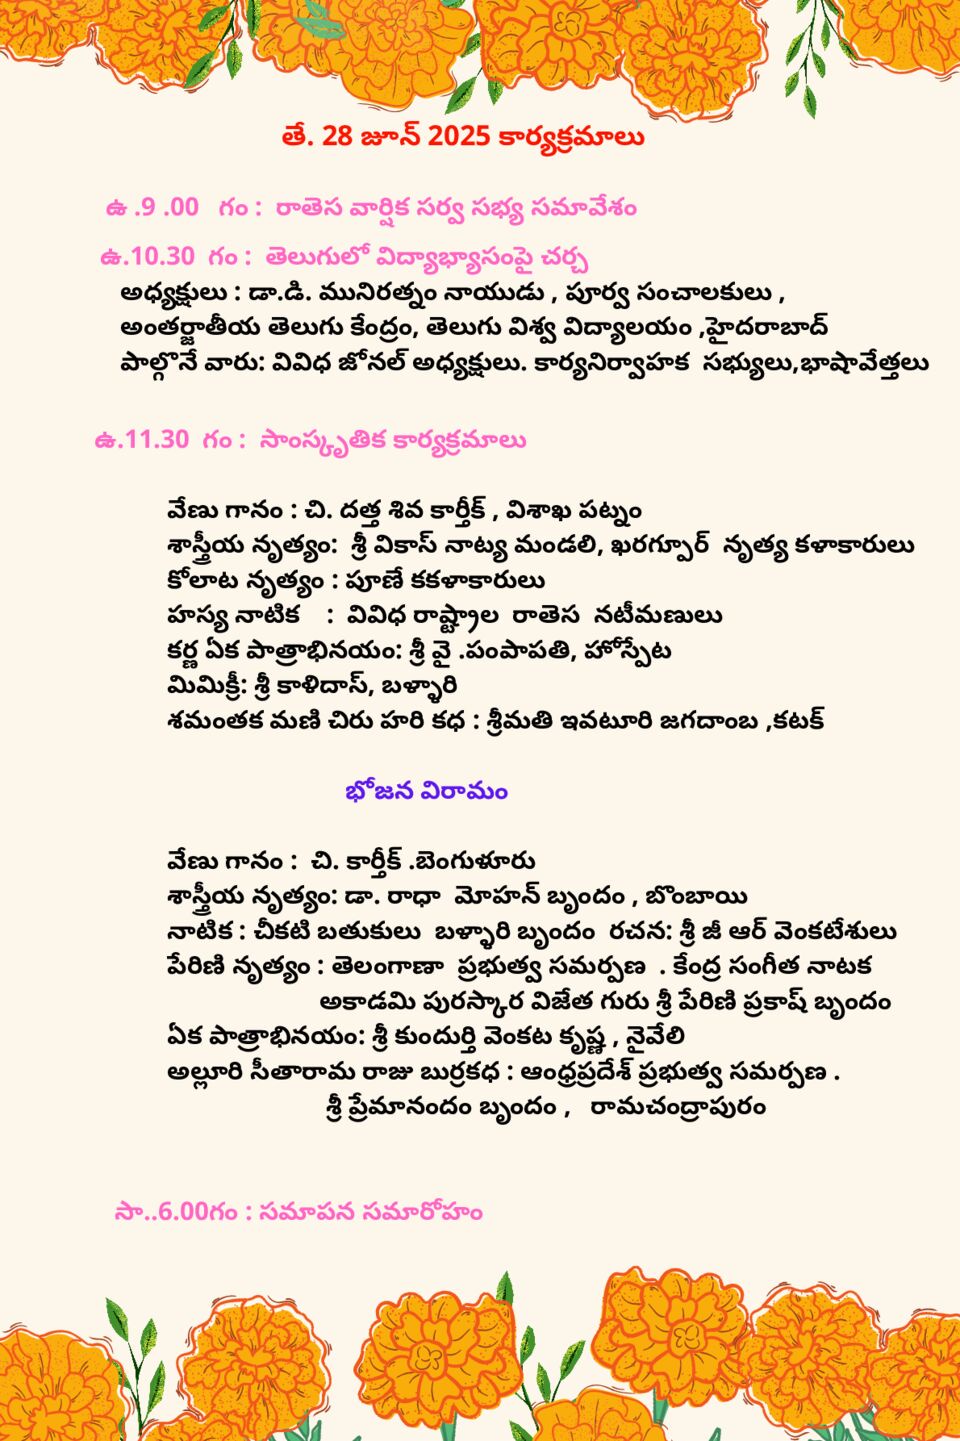 తే. 28 జూన్ 2025 కార్యక్రమాలు
ఉ .9 .00 గం : రాతెస వార్షిక సర్వ సభ్య సమావేశం
ఉ.10.30 గం : తెలుగులో విద్యాభ్యాసంపై చర్చ
అధ్యక్షులు : డా.డి. మునిరత్నం నాయుడు , పూర్వ సంచాలకులు ,
అంతర్జాతీయ తెలుగు కేంద్రం, తెలుగు విశ్వ విద్యాలయం ,హైదరాబాద్
పాల్గొనే వారు: వివిధ జోనల్ అధ్యక్షులు. కార్యనిర్వాహక సభ్యులు,భాషావేత్తలు
ఉ.11.30 గం : సాంస్కృతిక కార్యక్రమాలు
వేణు గానం : చి. దత్త శివ కార్తీక్ , విశాఖ పట్నం
శాస్త్రీయ నృత్యం: శ్రీ వికాస్ నాట్య మండలి, ఖరగ్పూర్ నృత్య కళాకారులు
కోలాట నృత్యం : పూణే కకళాకారులు
హస్య నాటిక : వివిధ రాష్ట్రాల రాతెస నటీమణులు
కర్ణ ఏక పాత్రాభినయం: శ్రీ వై .పంపాపతి, హోస్పేట
మిమిక్రీ: శ్రీ కాళిదాస్, బళ్ళారి
శమంతక మణి చిరు హరి కధ : శ్రీమతి ఇవటూరి జగదాంబ ,కటక్
భోజన విరామం
వేణు గానం : చి. కార్తీక్ .బెంగుళూరు
శాస్త్రీయ నృత్యం: డా. రాధా మోహన్ బృందం , బొంబాయి
నాటిక : చీకటి బతుకులు బళ్ళారి బృందం రచన: శ్రీ జీ ఆర్ వెంకటేశులు
పేరిణి నృత్యం : తెలంగాణా ప్రభుత్వ సమర్పణ . కేంద్ర సంగీత నాటక
అకాడమి పురస్కార విజేత గురు శ్రీ పేరిణి ప్రకాష్ బృందం
ఏక పాత్రాభినయం: శ్రీ కుందుర్తి వెంకట కృష్ణ , నైవేలి
అల్లూరి సీతారామ రాజు బుర్రకధ : ఆంధ్రప్రదేశ్ ప్రభుత్వ సమర్పణ .
శ్రీ ప్రేమానందం బృందం , రామచంద్రాపురం
సా..6.00గం : సమాపన సమారోహం